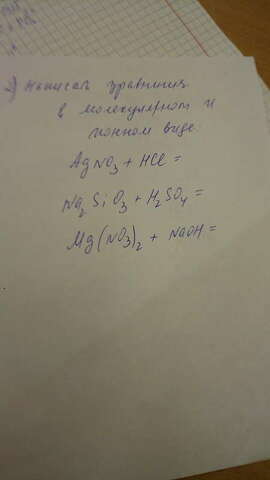 Написать уравнения
в молекулярном и
ионном виде.
AgNO₃ + HCl =
Na₂SiO₃ + H₂SO₄ =
Mg(NO₃)₂ + NaOH =